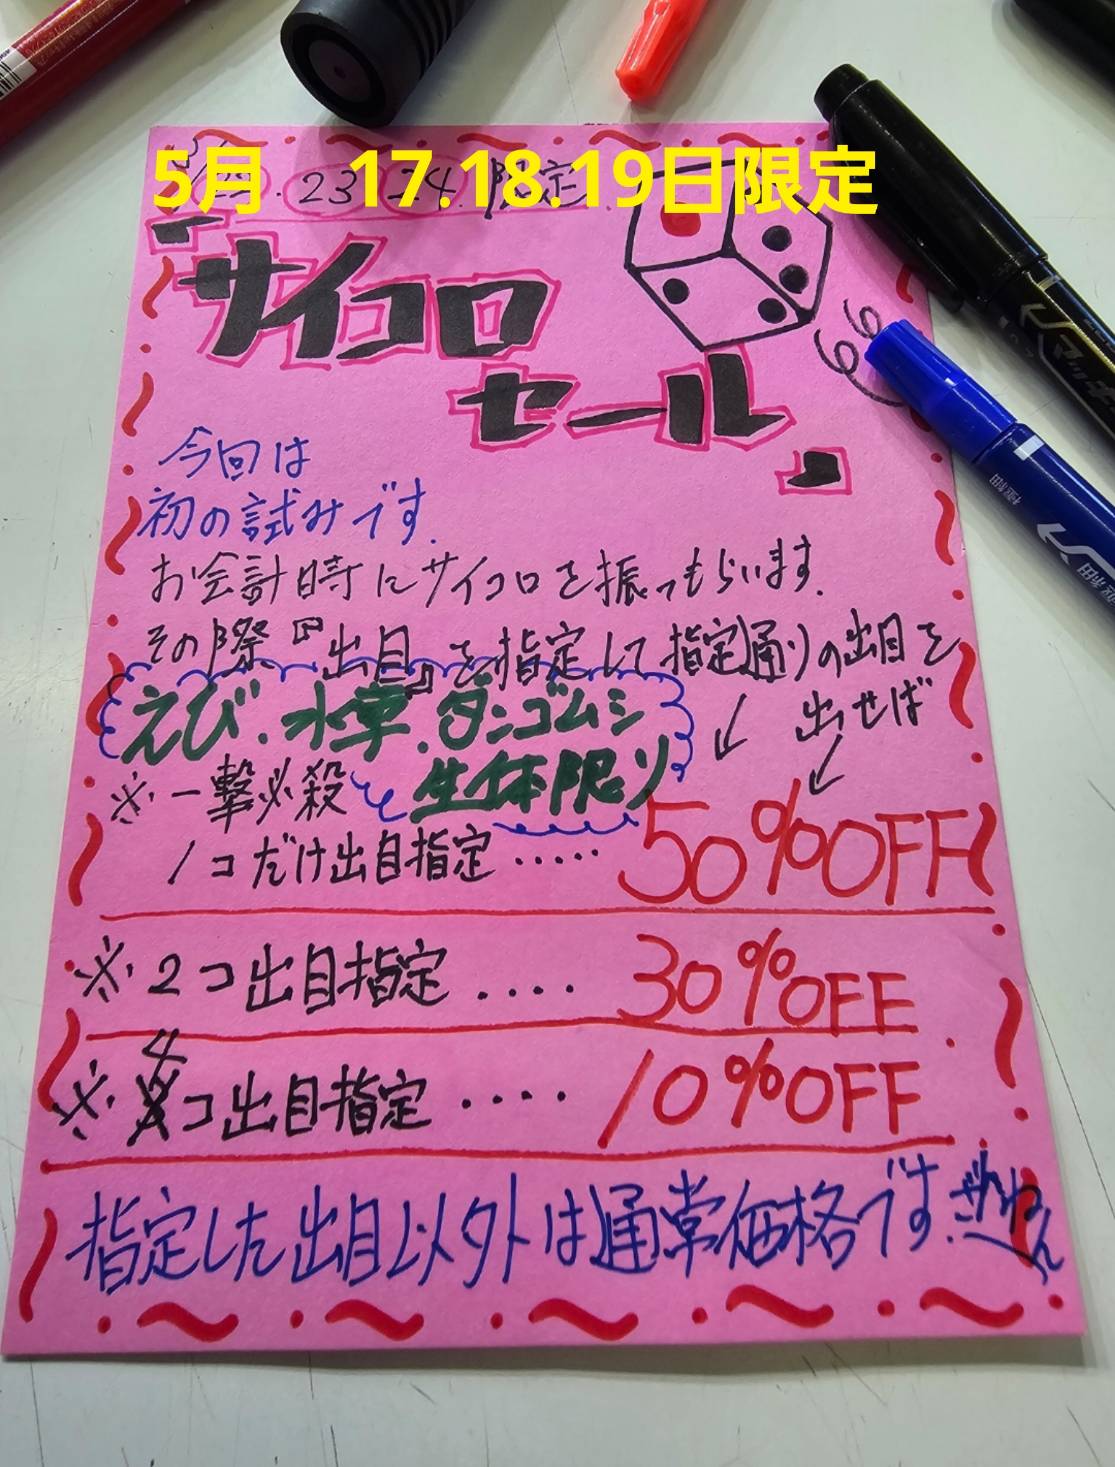 5月 17.18.19日限定
23 24 限定
「サイコロ
セール」
今回は
初の試みです.
お会計時にサイコロを振ってもらいます.
その際『出目』を指定して指定通りの出目を
出せば
えび.水草.ダンゴムシ
生体限り
※一撃必殺
1コだけ出目指定‥‥‥50%OFF
※2コ出目指定‥‥30%OFF
※4コ出目指定‥‥10%OFF
指定した出目以外は通常価格です.ざんねん
マッキー
極細